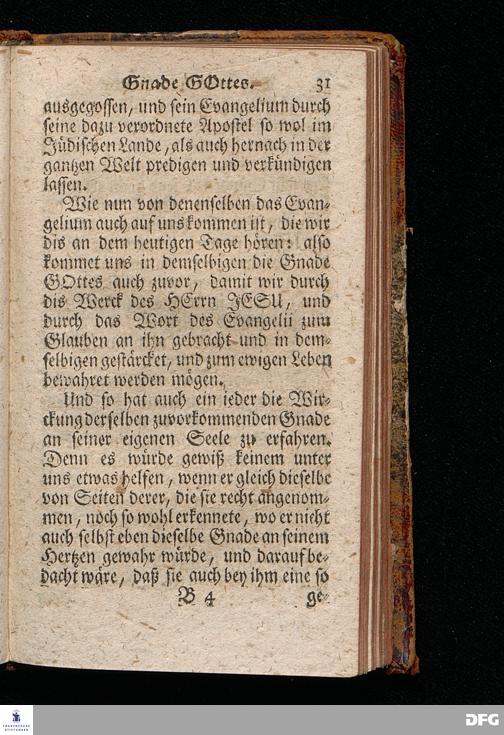 Gnade GOttes. 31
ausgegossen, und sein Evangelium durch
seine dazu verordnete Apostel so wol im
Jüdischen Lande, als auch hernach in der
gantzen Welt predigen und verkündigen
lassen.
Wie nun von denenselben das Evan-
gelium auch auf uns kommen ist, die wir
dis an dem heutigen Tage hören: also
kommet uns in demselbigen die Gnade
GOttes auch zuvor, damit wir durch
dis Werck des HErrn JESU, und
durch das Wort des Evangelii zum
Glauben an ihn gebracht und in dem-
selbigen gestärcket, und zum ewigen Leben
bewahret werden mögen.
Und so hat auch ein ieder die Wir-
ckung derselben zuvorkommenden Gnade
an seiner eigenen Seele zu erfahren.
Denn es würde gewiß keinem unter
uns etwas helfen, wenn er gleich dieselbe
von Seiten derer, die sie recht angenom-
men, noch so wohl erkennete, wo er nicht
auch selbst eben dieselbe Gnade an seinem
Hertzen gewahr würde, und darauf be-
dacht wäre, daß sie auch bey ihm eine so
B 4 ge-
FRANCKESCHE
STIFTUNGEN
DFG